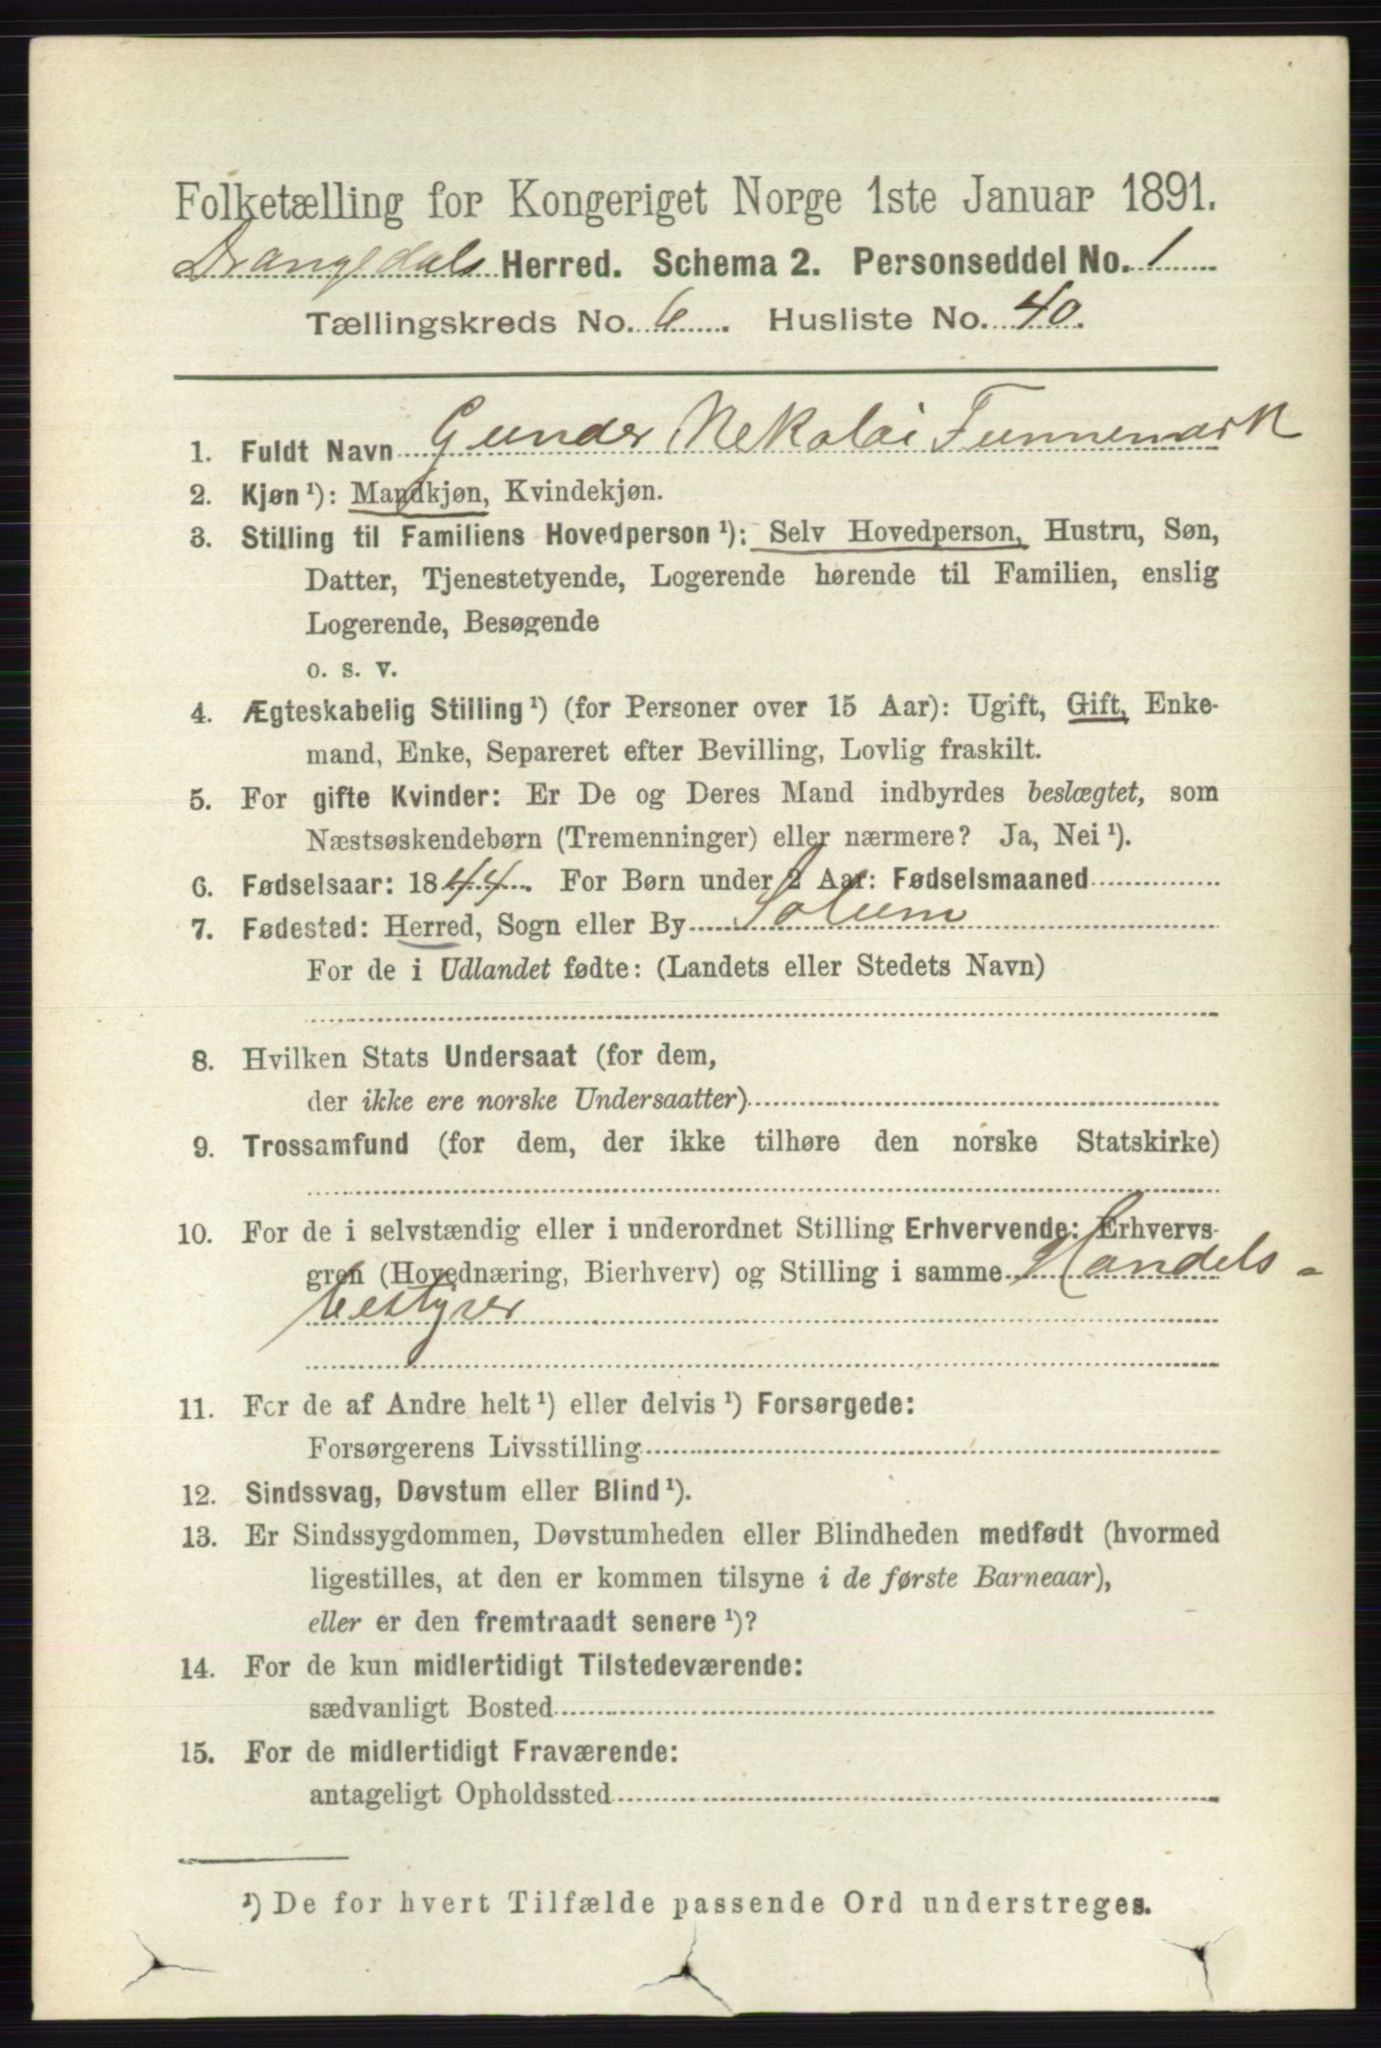 Folketælling for Kongeriget Norge 1ste Januar 1891.
Drangedals Herred. Schema 2. Personseddel No. 1
Tællingskreds No. 6. Husliste No. 40.
1. Fuldt Navn Gunder Nekolai Funnemark
2. Kjøn ¹): Mandkjøn, Kvindekjøn.
3. Stilling til Familiens Hovedperson ¹): Selv Hovedperson, Hustru, Søn,
Datter, Tjenestetyende, Logerende hørende til Familien, enslig
Logerende, Besøgende
o. s. v.
4. Ægteskabelig Stilling ¹) (for Personer over 15 Aar): Ugift, Gift, Enke-
mand, Enke, Separeret efter Bevilling, Lovlig fraskilt.
5. For gifte Kvinder: Er De og Deres Mand indbyrdes beslægtet, som
Næstsøskendebørn (Tremenninger) eller nærmere? Ja, Nei ¹).
6. Fødselsaar: 1844. For Børn under 2 Aar: Fødselsmaaned
7. Fødested: Herred, Sogn eller By Solum
For de i Udlandet fødte: (Landets eller Stedets Navn)
8. Hvilken Stats Undersaat (for dem,
der ikke ere norske Undersaatter)
9. Trossamfund (for dem, der ikke tilhøre den norske Statskirke)
10. For de i selvstændig eller i underordnet Stilling Erhvervende: Erhvervs-
gren (Hovednæring, Bierhverv) og Stilling i samme Handels-
bestyrer
11. For de af Andre helt ¹) eller delvis ¹) Forsørgede:
Forsørgerens Livsstilling
12. Sindssvag, Døvstum eller Blind ¹).
13. Er Sindssygdommen, Døvstumheden eller Blindheden medfødt (hvormed
ligestilles, at den er kommen tilsyne i de første Barneaar),
eller er den fremtraadt senere ¹)?
14. For de kun midlertidigt Tilstedeværende:
sædvanligt Bosted
15. For de midlertidigt Fraværende:
antageligt Opholdssted
¹) De for hvert Tilfælde passende Ord understreges.